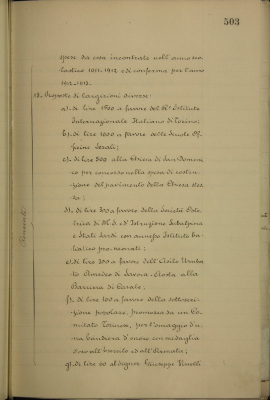 503
spese da essa incontrate nell'anno sco
lastico 1911-1912 e di conferma per l'anno
1912-1913.
13. Proposte di largizioni diverse:
a). di lire 1500 a favore del R.º Istituto
Internazionale Italiano di Torino;
b). di lire 1000 a favore delle Scuole Of=
ficine Serali;
c). di lire 500 alla Chiesa di San Domeni
co per concorso nella spesa di costru=
zione del pavimento della Chiesa stes
sa;
d). di lire 300 a favore della Società Pato
logica di M. S. e d'Istruzione Subalpina
e Stati Sardi con annesso Istituto ba=
liatico pro-neonati;
e). di lire 300 a favore dell'Asilo Umber
to Amedeo di Savoia-Aosta alla
Barriera di Casale;
f). di lire 100 a favore della sottoscri=
zione popolare, promossa da un Co=
mitato Torinese, per l'omaggio d'u=
na bandiera d'onore con medaglia
d'oro all'Esercito ed all'Armata;
g). di lire 50 al signor Giuseppe